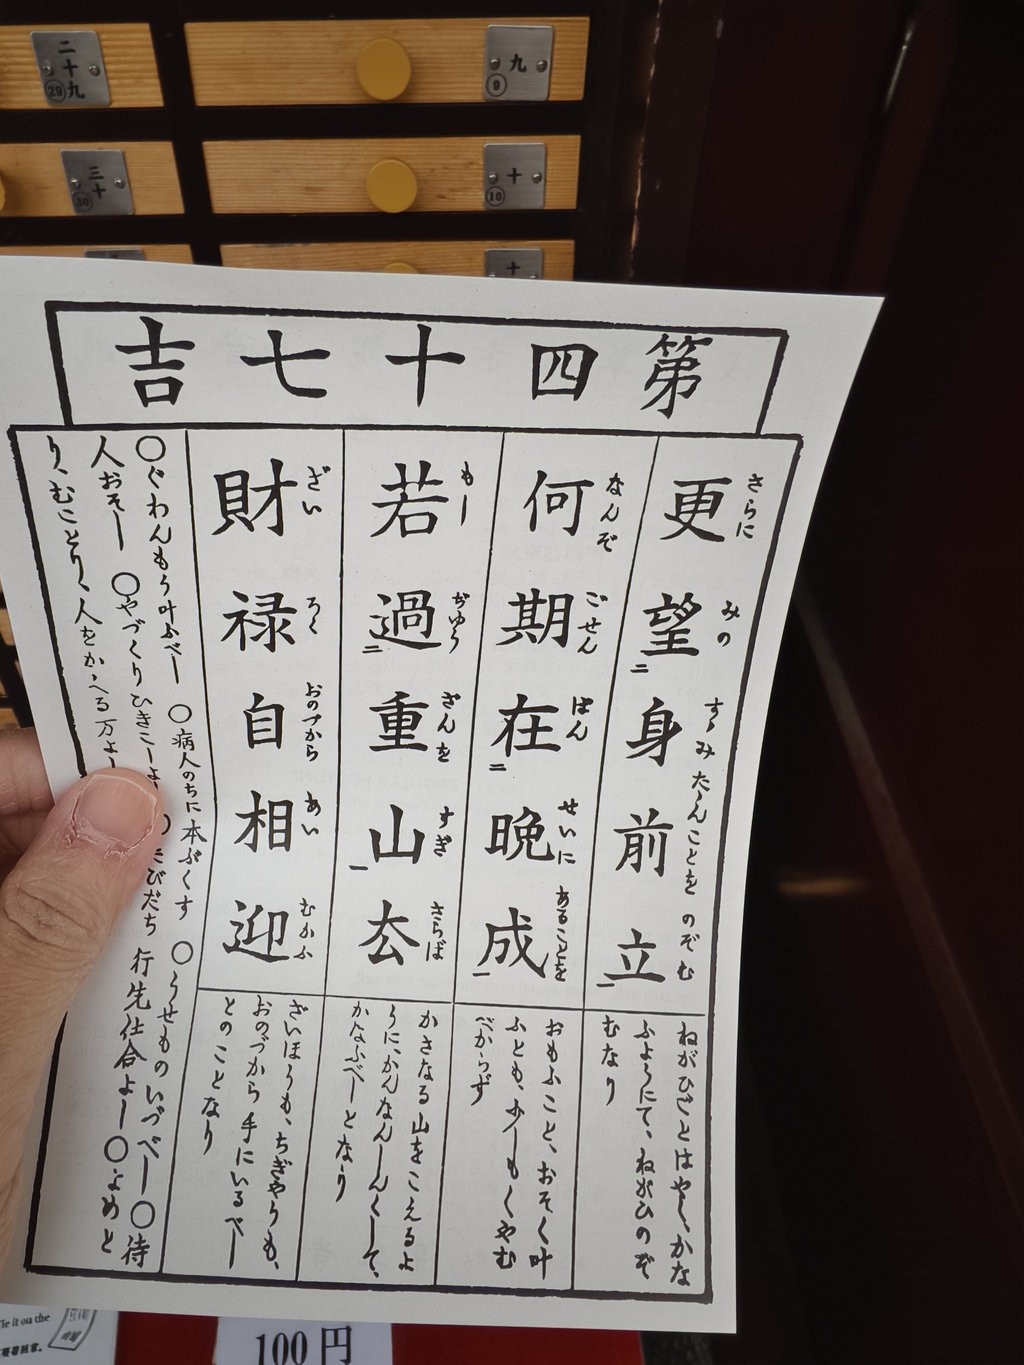 二十九
29
九
9
三十
30
十
10
十
第四十七吉
更望身前立
さらに
みの
すゝみたゝんことを のぞむ
二
一
何期在晩成
なんぞ
ごせん
ばん
せいに
あることを
二
一
若過重山去
もし
ぢゆう
ざんを
すぎ
さらば
二
一
財禄自相迎
ざい
ろく
おのづから
あい
むかふ
ねがひごとはやく、かな
ふようにて、ねがひのぞ
むなり
おもふこと、おそく叶
ふとも、少しもくやむ
べからず
かさなる山をこえるよ
うに、かんなんしんくして、
かなふべしとなり
ざいほうも、ちぎやうも、
おのづから手にいるべし
とのことなり
○ぐわんもう叶ふべし ○病人のちに本ぶくす ○うせものいづべし○待
人おそし ○やづくりひきこしよ たびだち 行先仕合よし○よめと
り、むことり、人をかゝへる万よし
Tie it on the
100円